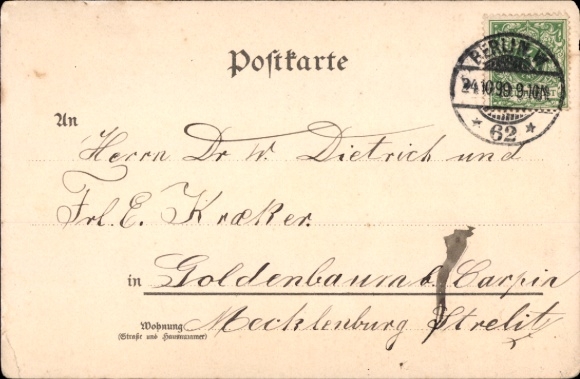 Postkarte
BERLIN.W.
24.10.99.9-10N.
* 62 *
An
Herrn Dr W. Dietrich und
Frl. E. Kræker.
in Goldenbaum b. Carpin
Wohnung Mecklenburg Strelitz
(Straße und Hausnummer)